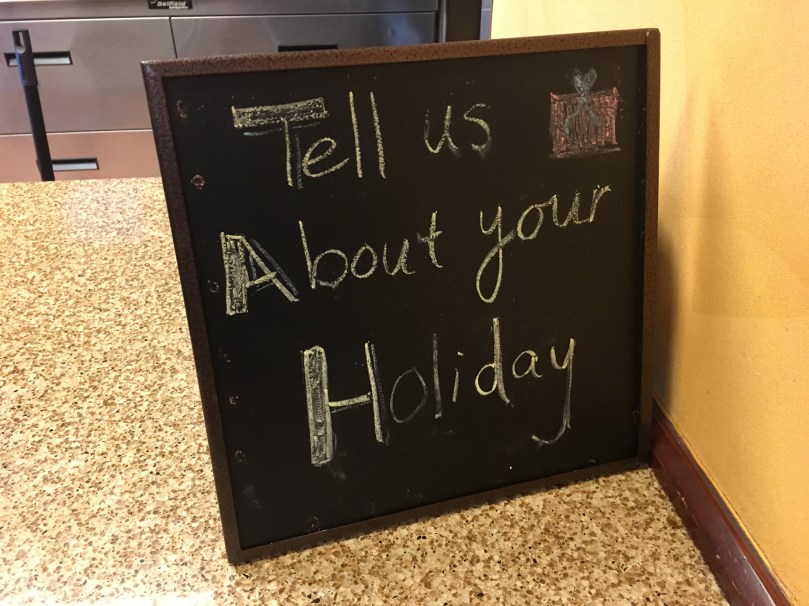 Delfield
Tell us
About your
Holiday